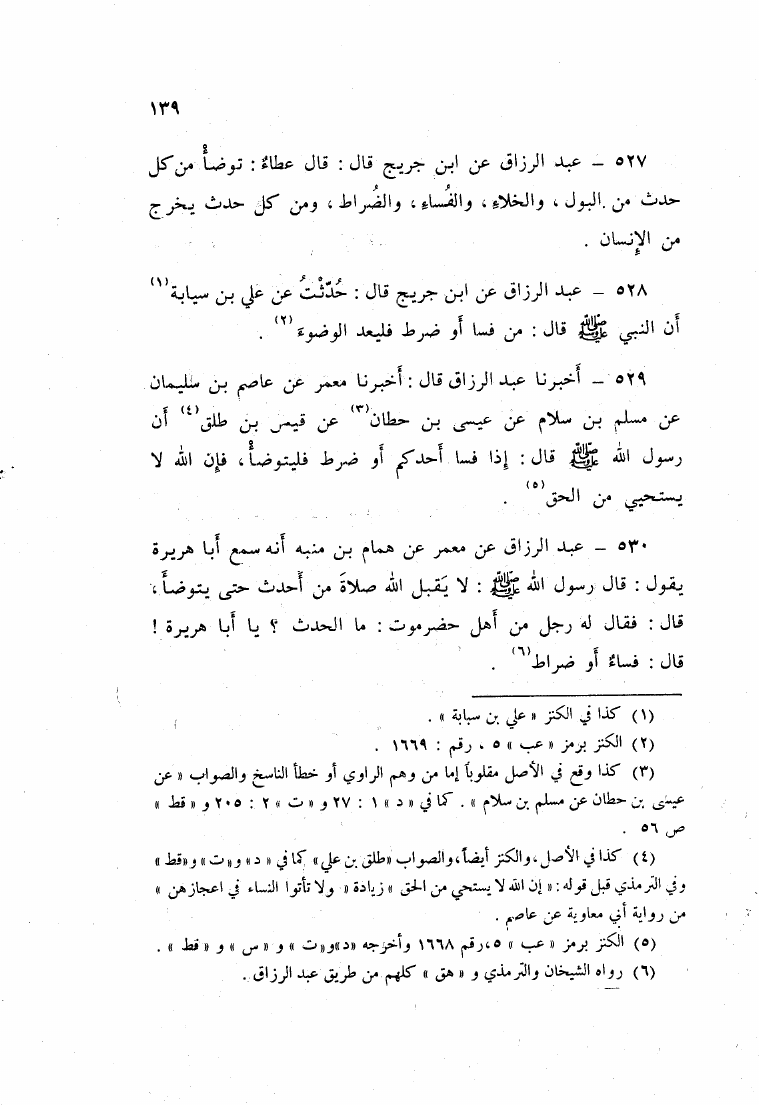 ١٣٩
٥٢٧ – عبد الرزاق عن ابن جريج قال : قال عطاءٌ : توضأْ من كل
حدث من البول ، والخلاءِ ، والفُساءِ ، والضُراط ، ومن كل حدث يخرج
من الإنسان .
٥٢٨ – عبد الرزاق عن ابن جريج قال : حُدّثْتُ عن علي بن سيابة(١)
أن النبي ﷺ قال : من فسا أو ضرط فليعد الوضوءَ(٢) .
٥٢٩ – أخبرنا عبد الرزاق قال : أخبرنا معمر عن عاصم بن سليمان
عن مسلم بن سلام عن عيسى بن حطان(٣) عن قيس بن طلق(٤) أن
رسول الله ﷺ قال : إذا فسا أحدكم أو ضرط فليتوضأْ ، فإن الله لا
يستحيي من الحق(٥) .
٥٣٠ – عبد الرزاق عن معمر عن همام بن منبه أنه سمع أبا هريرة
يقول : قال رسول الله ﷺ : لا يَقبل الله صلاةَ من أحدث حتى يتوضأ ،
قال : فقال له رجل من أهل حضرموت : ما الحدث ؟ يا أبا هريرة !
قال : فساءٌ أو ضراط(٦) .
(١) كذا في الكنز « علي بن سيابة » .
(٢) الكنز برمز « عب » ٥ ، رقم : ١٦٦٩ .
(٣) كذا وقع في الأصل مقلوباً إما من وهم الراوي أو خطأ الناسخ والصواب « عن
عيسى بن حطان عن مسلم بن سلام » . كما في « د » ١ : ٢٧ و « ت » ٢ : ٢٠٥ و « قط »
ص ٥٦ .
(٤) كذا في الأصل ، والكنز أيضاً ، والصواب «طلق بن علي» كما في « د » و «ت» و «قط»
وفي الترمذي قبل قوله : « إن الله لا يستحي من الحق » زيادة « ولا تأتوا النساء في اعجازهن »
من رواية أبي معاوية عن عاصم .
(٥) الكنز برمز « عب » ٥ ، رقم ١٦٦٨ وأخرجه «د» و«ت » و « س » و « قط » .
(٦) رواه الشيخان والترمذي و « هق » كلهم من طريق عبد الرزاق .